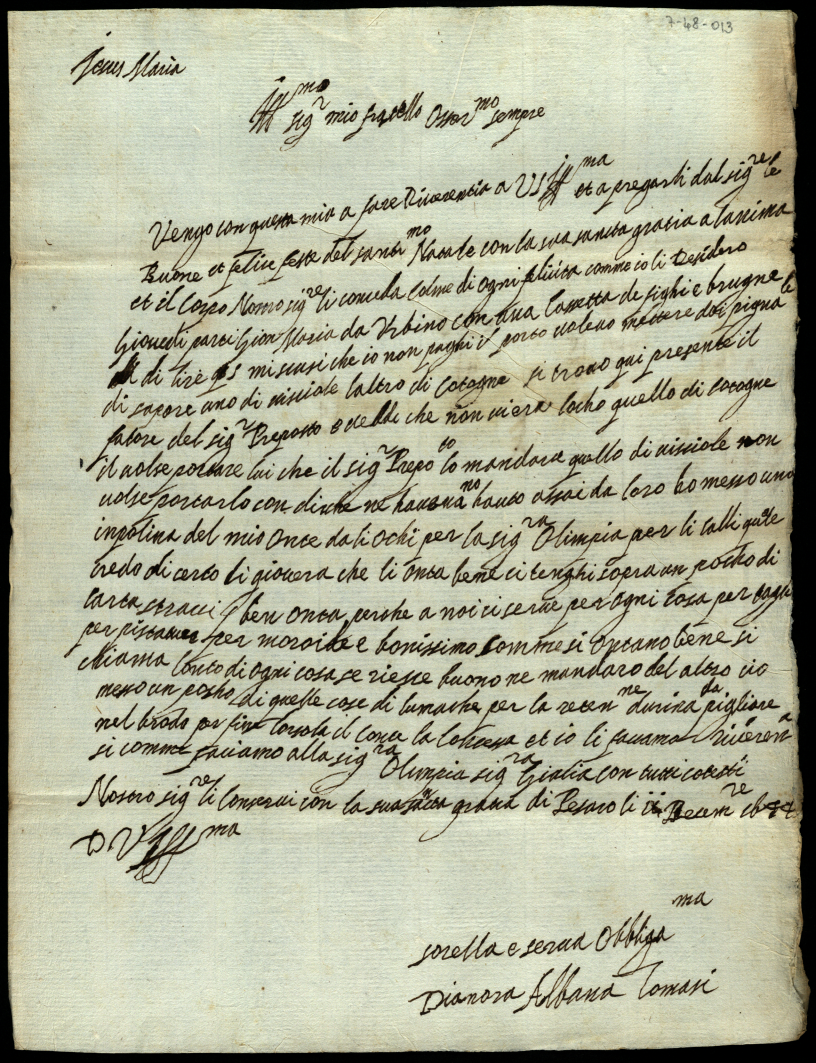 7-48-013
Jesus Maria
Ill mo sig r mio fratello Osser mo sempre
Vengo con questa mia a fare Riverentia a VS Ill ma et a pregarli dal sig re le
Buone et felice feste del santi mo Natale con la sua santa gratia a lanima
et il Corpo Nostro sig re li conceda Colme di ogni felicita comme io li Desidero
Giovedi parti Gion Maria da Urbino con una Cassetta de fighi e brugne
di lire mi scusi che io non paghi il porto volevo mettere doi pigna te
di sapore uno di visciole laltro di Cotogne si trovo qui presente il
fatore del sig r Preposto e vedde che non viera locho quello di cotogne
il volse portare lui che il sig r Prepo to lo mandara quello di visciole non
volse portarlo con dirche ne havana no hauto assai da loro ho messo uno
inpolina del mio Once dali Ochi per la sig ra Olimpia per li calli quale
credo di certo li giovera che li Onta bene ci tenghi sopra un pocho di
carta straci ben Onta perche a noi ci serve per ogni cosa per tagli
per per moroide e bonissimo comme si Ontano bene si
chiama Onto di ogni cosa se riesce buono ne mandaro del altro cio
messo un pocho di quelle cose di lumache per la reten ne durina da pigliare
nel brodo per fine Corsola il Conte la Contessa et io li facciamo riveren a
si comme faciamo alla sig ra Olimpia sig ra Giulia con tutti cotesti
Nostro sig re li Conservi con la sua santa gratia di Pesaro li Decem re
D V S Ill ma
sorella e serva Obbliga ma
Dianora Albana Tomasi